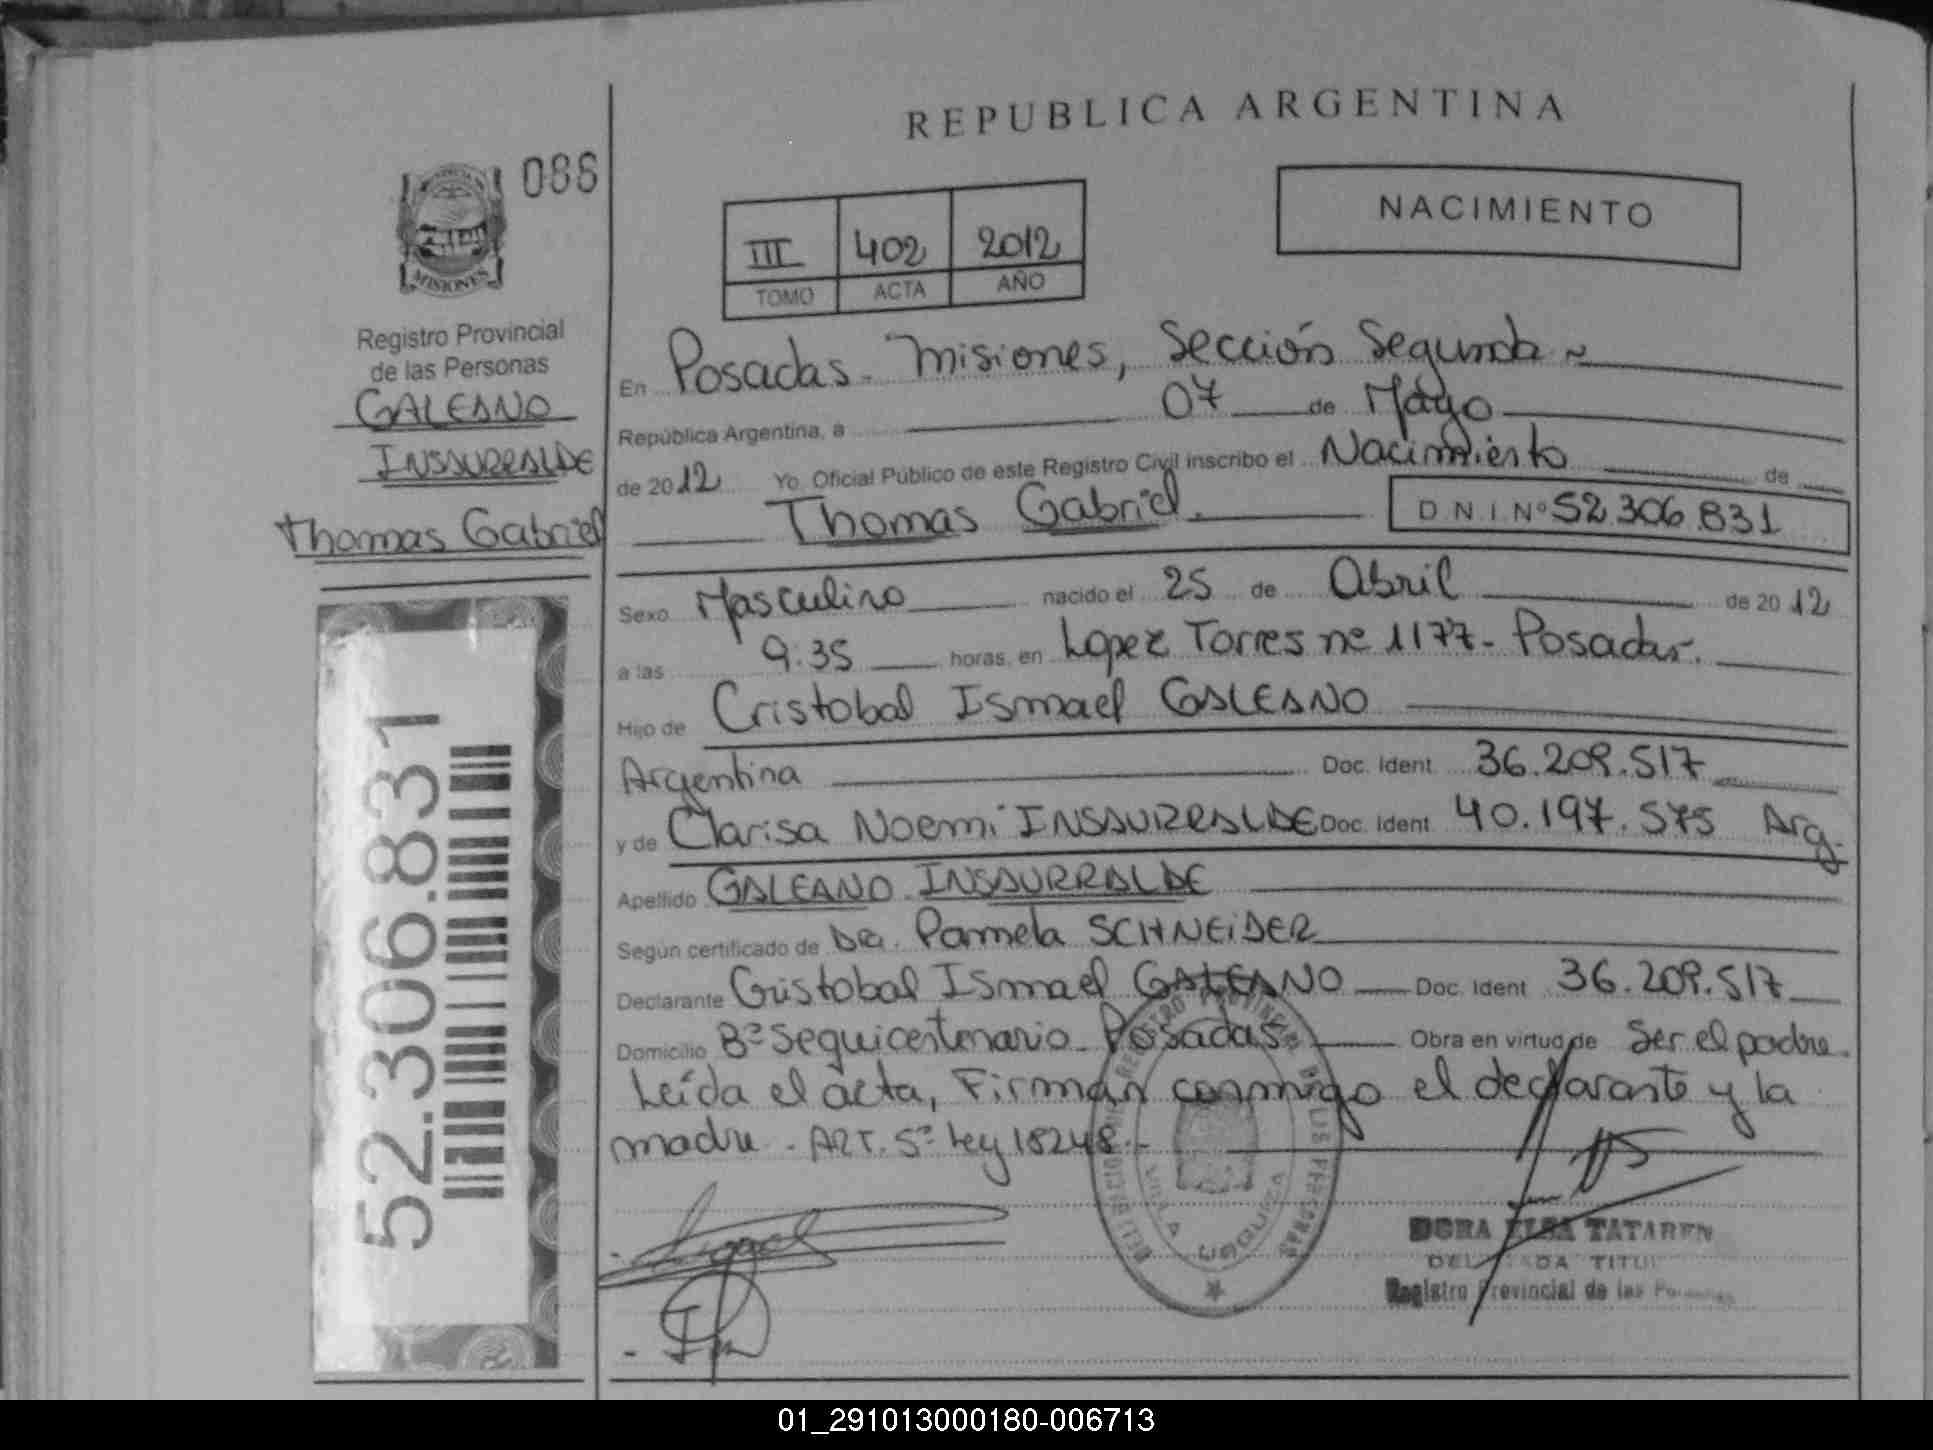 REPUBLICA ARGENTINA
086
NACIMIENTO
III 402 2012
TOMO ACTA AÑO
MISIONES
Registro Provincial
de las Personas
GALEANO
INSAURRALDE
Thomas Gabriel
52.306.831
En Posadas - Misiones, Sección Segunda
República Argentina, a 07 de Mayo
de 2012 Yo, Oficial Público de este Registro Civil inscribo el Nacimiento de
Thomas Gabriel. D.N.I. Nº 52.306.831
Sexo Masculino nacido el 25 de Abril de 2012
a las 9:35 horas, en Lopez Torres nº 1177 - Posadas.
Hijo de Cristobal Ismael GALEANO
Argentina Doc. Ident. 36.209.517
y de Clarisa Noemi INSAURRALDE Doc. Ident. 40.197.575 Arg.
Apellido GALEANO INSAURRALDE
Según certificado de Dra. Pamela SCHNEIDER
Declarante Cristobal Ismael GALEANO Doc. Ident. 36.209.517
Domicilio Bº Sequicentenario - Posadas Obra en virtud de Ser el padre.
Leída el acta, Firman conmigo el declarante y la
madre. ART. 5º Ley 18248.-
DORA ELSA TATAREN
Registro Provincial de las
01_291013000180-006713